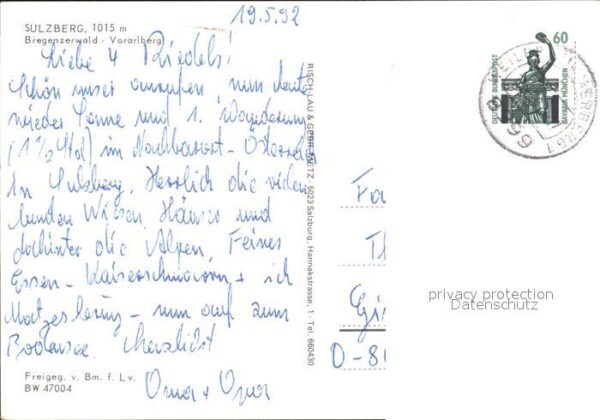 19.5.92
SULZBERG, 1015 m
Bregenzerwald - Vorarlberg
Liebe 4 Riedels!
Schön unser anrufen, nun heute
wieder Sonne und 1. Wanderung
(1½ Std) im Nachbarort - Österreich
in Sulzberg. Herrlich die vielen
bunten Wiesen, Häuser und
dahinter die Alpen. Feines
Essen - Kaiserschmarrn + ich
- nun auf zum
Bodensee. Herzlichst
Oma + Opa
Freigeg. v. Bm. f. L v.
BW 47004
RISCH-LAU & GEBR. METZ, 5023 Salzburg, Hannakstrasse, 1 - Tel. 660430
60
DEUTSCHE BUNDESPOST
BAVARIA MÜNCHEN
Fa
Th
Gi
D-80
privacy protection
Datenschutz